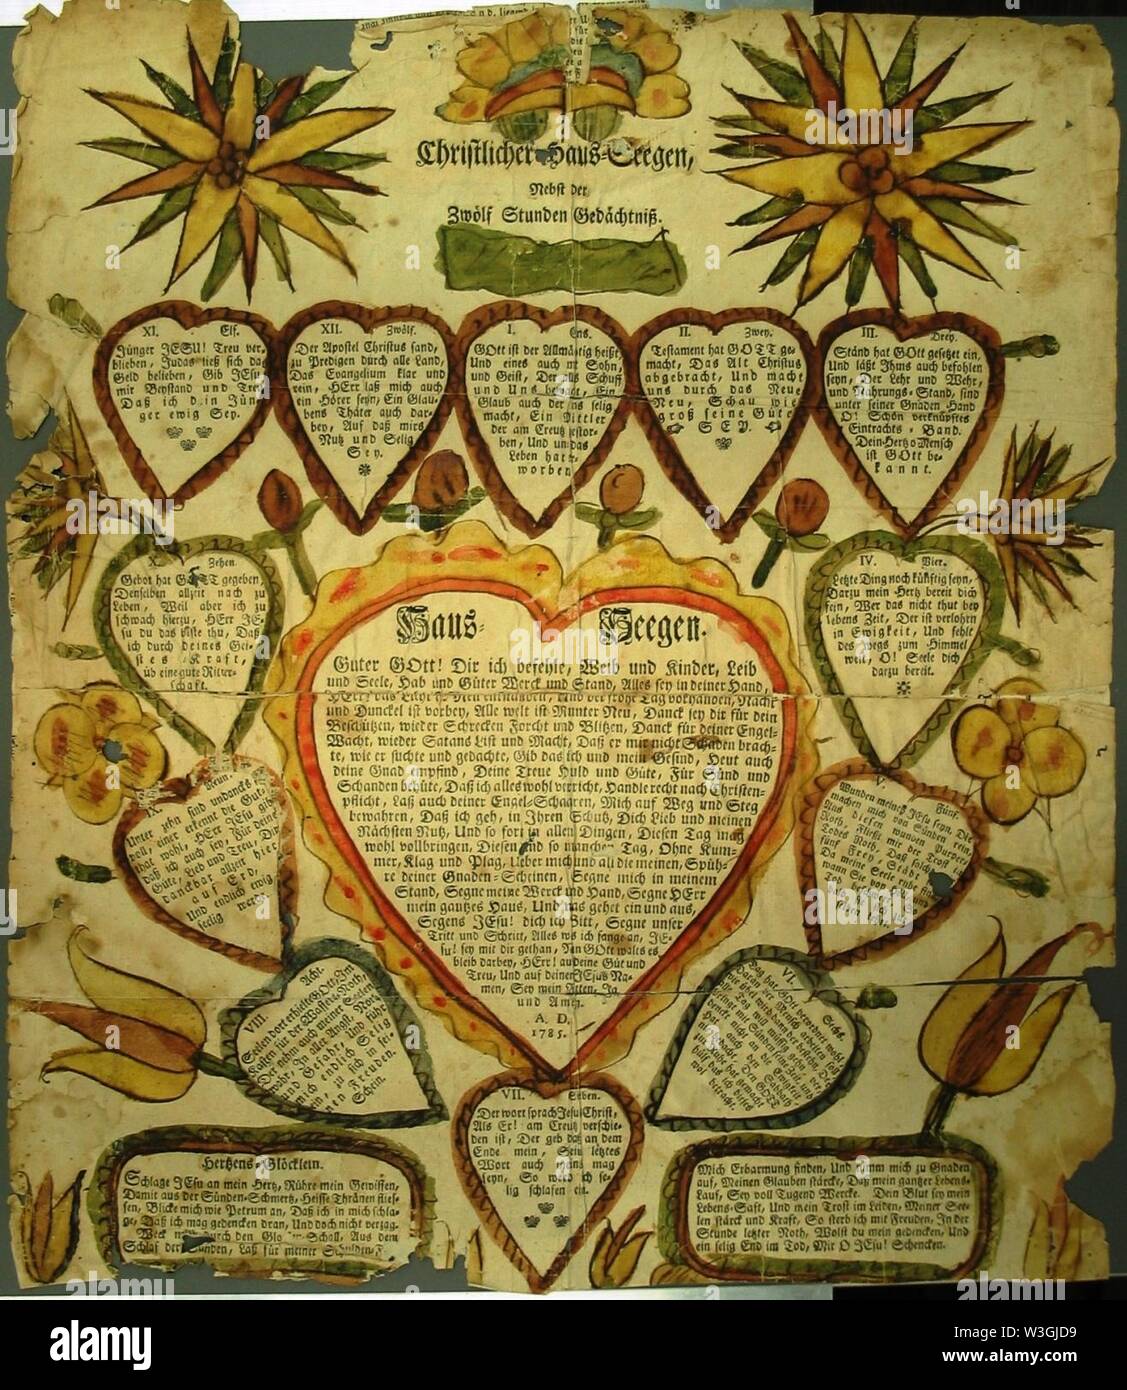 Christlicher Haus-Seegen,
Nebst der
Zwölf Stunden Gedächtniß.
XI. Elf.
Jünger JESU! Treu ver-
blieben, Judas ließ sich das
Geld belieben, Gib JEsu
mir Beystand und Treu,
Daß ich dein Jün-
ger ewig Sey.
XII. Zwölf.
Der Apostel Christus sand,
zu Predigen durch alle Land,
Das Evangelium klar und
rein, HErr laß mich auch
ein Hörer seyn, Ein Glau-
bens Thäter auch dar-
bey, Auf daß mirs
Nutz und Selig
Sey.
I. Eins.
GOtt ist der Allmächtig heißt,
Und eines auch mit Sohn,
und Geist, Der als Schuff
und Uns bewacht, Ein
Glaub auch der uns selig
macht, Ein Mittler
der am Creutz gestor-
ben, Und uns das
Leben hat er-
worben
II. Zwey.
Testament hat GOTT ge-
macht, Das Alt Christus
abgebracht, Und macht
uns durch das Neue
Neu, Schau wie
groß seine Güte
SEY.
III. Drey.
Ständ hat GOtt gesetzet ein,
Und läßt Ihms auch befohlen
seyn, Der Lehr und Wehr,
und Nahrungs-Stand, sind
unter seiner Gnaden-Hand
O! Schön verknüpftes
Eintrachts-Band.
Dein Hertz o Mensch
ist GOtt be-
kannt.
X. Zehen.
Gebot hat GOTT gegeben,
Denselben allzeit nach zu
Leben, Weil aber ich zu
schwach hierzu, HErr JE-
su du das beste thu, Daß
ich durch deines Gei-
stes Kraft,
üb eine gute Ritter-
schaft.
IV. Vier.
Letzte Ding noch künftig seyn,
Darzu mein Hertz bereit dich
fein, Wer das nicht thut bey
lebens Zeit, Der ist verlohrn
in Ewigkeit, Und fehlt
des wegs zum Himmel
weit, O! Seele dich
darzu bereit.
Haus-Seegen.
Guter GOtt! Dir ich befehle, Weib und Kinder, Leib
und Seele, Hab und Güter Werck und Stand, Alles sey in deiner Hand,
HErr! das Licht ist Neu entstanden, Und der frohe Tag vorhanden, Nacht
und Dunckel ist vorbey, Alle welt ist Munter Neu, Danck sey dir für dein
Beschützen, wieder Schrecken Forcht und Blitzen, Danck für deiner Engel-
Wacht, wieder Satans List und Macht, Daß er mir nicht Schaden brach-
te, wie er suchte und gedachte, Gib das ich und mein Gesind, Heut auch
deine Gnad Empfind, Deine Treue Huld und Güte, Für Sünd und
Schanden behüte, Daß ich alles wohl verricht, Handle recht nach Christen-
pflicht, Laß auch deiner Engel-Schaaren, Mich auf Weg und Steg
bewahren, Daß ich geh, in Ihren Schutz, Dich Lieb und meinen
Nächsten Nutz, Und so fort in allen Dingen, Diesen Tag mag
wohl vollbringen, Diesen und so manchen Tag, Ohne Kum-
mer, Klag und Plag, Ueber mich und all die meinen, Spüh-
re deiner Gnaden-Scheinen, Segne mich in meinem
Stand, Segne meine Werck und Hand, Segne HErr
mein gantzes Haus, Und was gehet ein und aus,
Segens JEsu! dich ich Bitt, Segne unser
Tritt und Schritt, Alles wo ich fange an, JE-
su! sey mit dir gethan, Nun GOtt walts es
bleib darbey, HErr! auf deine Güt und
Treu, Und auf deinen JEsus Na-
men, Sey mein Atten, Ja
und Amen.
A. D.
1785.
IX. Neun.
Unter zehn sind undanckbar
voll, einer erkennt die Gut-
that wohl, HErr JEsu gib
daß ich auch sey, Für deine
Güte, Lieb und Treu, Dir
danckbar allzeit hier
auf Erd,
Und endlich ewig
seelig werd.
V. Fünf.
Wunden meines JEsu seyn, Die
machen mich von Sünden rein,
Aus diesen wunden
Roth, Fließt mir der Trost in
Todes Noth, Daß solche
fünf Frey, Städt
Da meine Seele ruhe
wann Sie von
VIII. Acht
Seelen dort erhielte GOtt, Im
Kasten für der Wasser Noth,
Der woll auch meiner Seelen
wahr, In aller Angst Noth
und Gefahr, und führ
mich endlich Selig
zu sich in sei-
nen Freuden
Schein.
VI. Sechs.
Tag hat GOtt verordnet wohl,
Daran der Mensch arbeiten soll,
VII. Sieben.
Der wort sprach Jesu Christ,
Als Er! am Creutz verschie-
den ist, Der geb daß an dem
Ende mein, Sein letztes
Wort auch meins mag
seyn, So werd ich se-
lig schlafen ein.
Hertzens-Glöcklein.
Schlage JEsu an mein Hertz, Rühre mein Gewissen,
Damit aus der Sünden-Schmertz, Heisse Thränen flies-
sen, Blicke mich wie Petrum an, Daß ich in mich schla-
ge, Daß ich mag gedencken dran, Und doch nicht verzag.
Weck mich durch den Glocken-Schall, Aus dem
Schlaf der Sünden, Laß für meiner Schulden-F
Mich Erbarmung finden, Und nimm mich zu Gnaden
auf, Meinen Glauben stärcke, Daß mein gantzer Lebens-
Lauf, Sey voll Tugend Wercke. Dein Blut sey mein
Lebens-Saft, Und mein Trost im Leiden, Meiner See-
len stärck und Kraft, So sterb ich mit Freuden, In der
Stunde letzter Noth, Wollst du mein gedencken, Und
ein selig End im Tod, Mir O JEsu! Schencken.
alamy
Image ID: W3GJD9
www.alamy.com